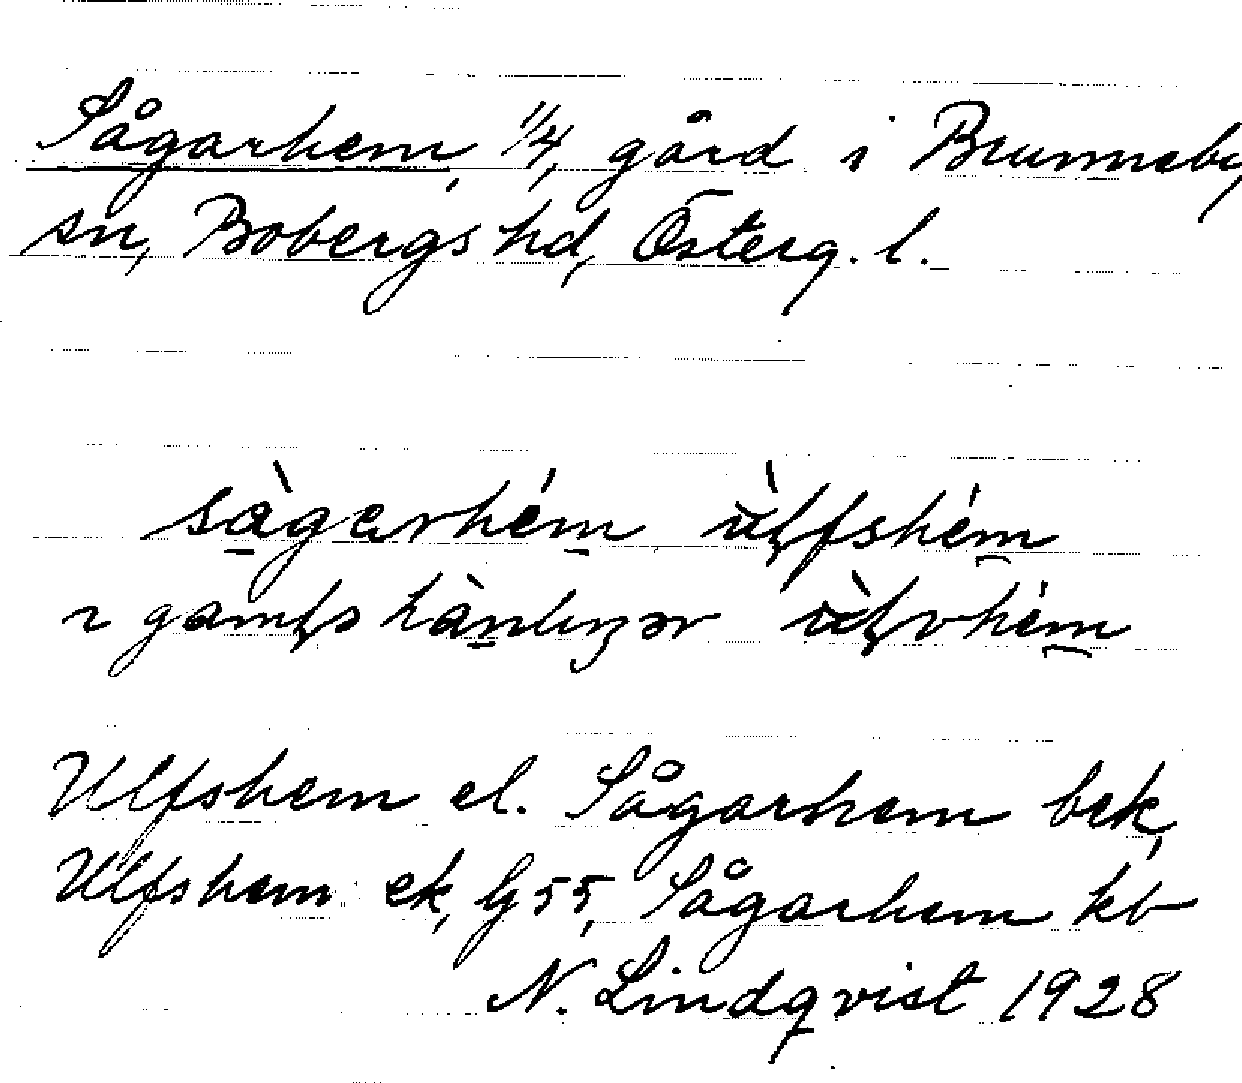 Sågarhem, 1/4, gård i Brunneby
sn, Bobergs hd, Österg. l.
sàgarhém ùlfshém
i gamḷs hànlıŋər ùlvhém
Ulfshem el. Sågarhem bek,
Ulfshem ek, G 55, Sågarhem kb
N. Lindqvist 1928